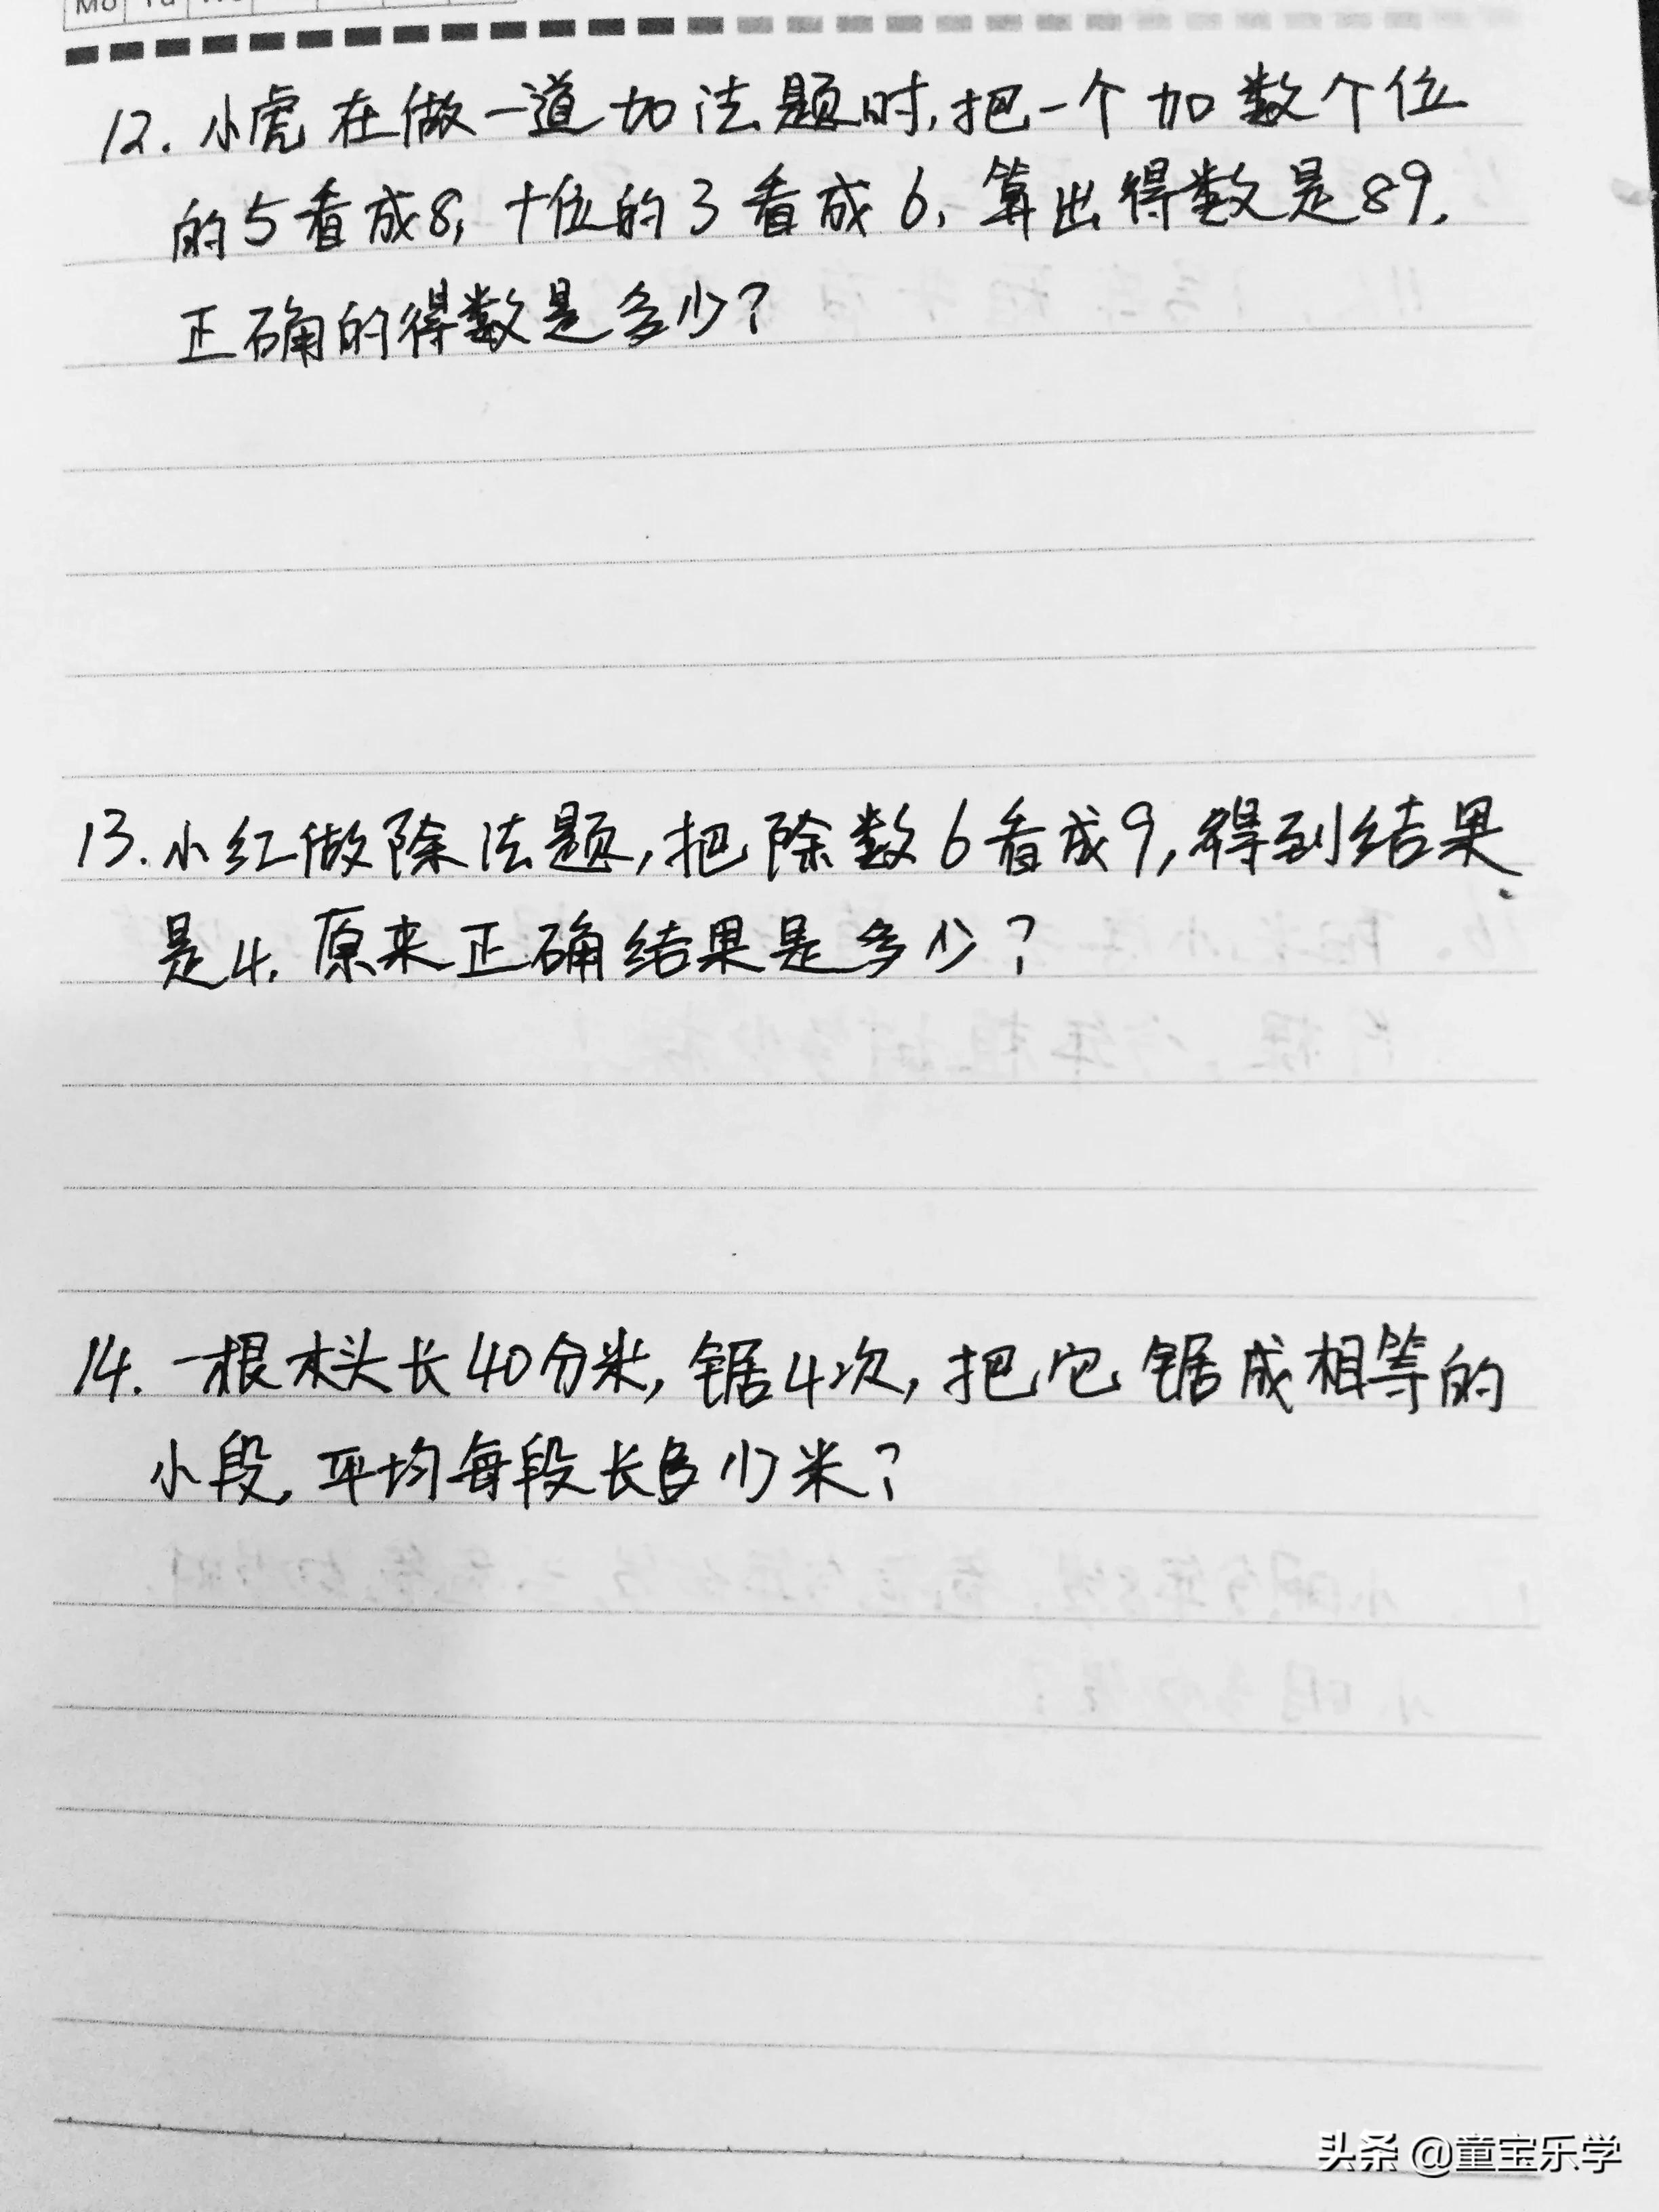 12. 小虎在做一道加法题时,把一个加数个位
的5看成8,十位的3看成6,算出得数是89.
正确的得数是多少?
13.小红做除法题,把除数6看成9,得到结果
是4.原来正确结果是多少?
14.一根木头长40分米,锯4次,把它锯成相等的
小段,平均每段长多少米?
头条 @童宝乐学